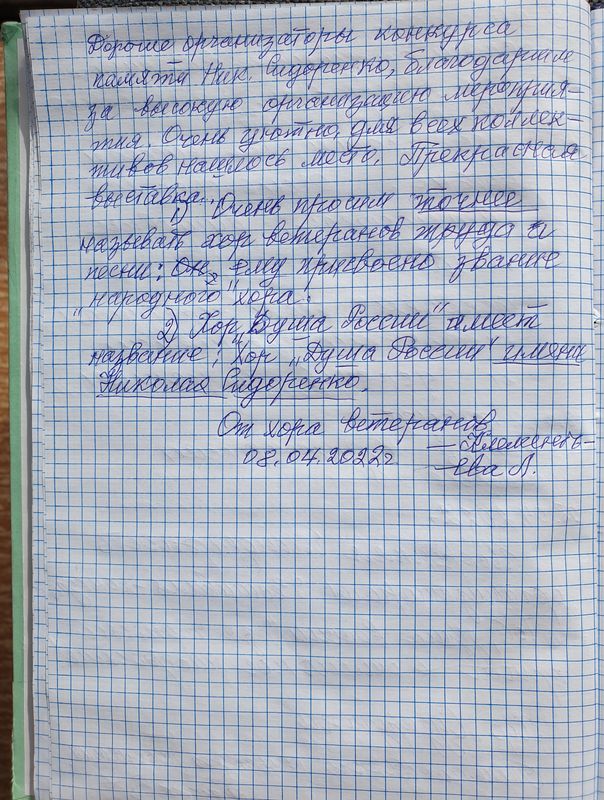 Дорогие организаторы конкурса
памяти Ник. Сидоренко, благодарим
за высокую организацию мероприя-
тия. Очень уютно, для всех коллек-
тивов нашлось место. Прекрасная
выставка.
1) Очень просим точнее
называть хор ветеранов труда и
песни: Ему присвоено звание
„народного" хора.
2) Хор „Душа России" имеет
название: Хор „Душа России" имени
Николая Сидоренко.
От хора ветеранов
08.04.2022г. — Клементь-
ева Л.